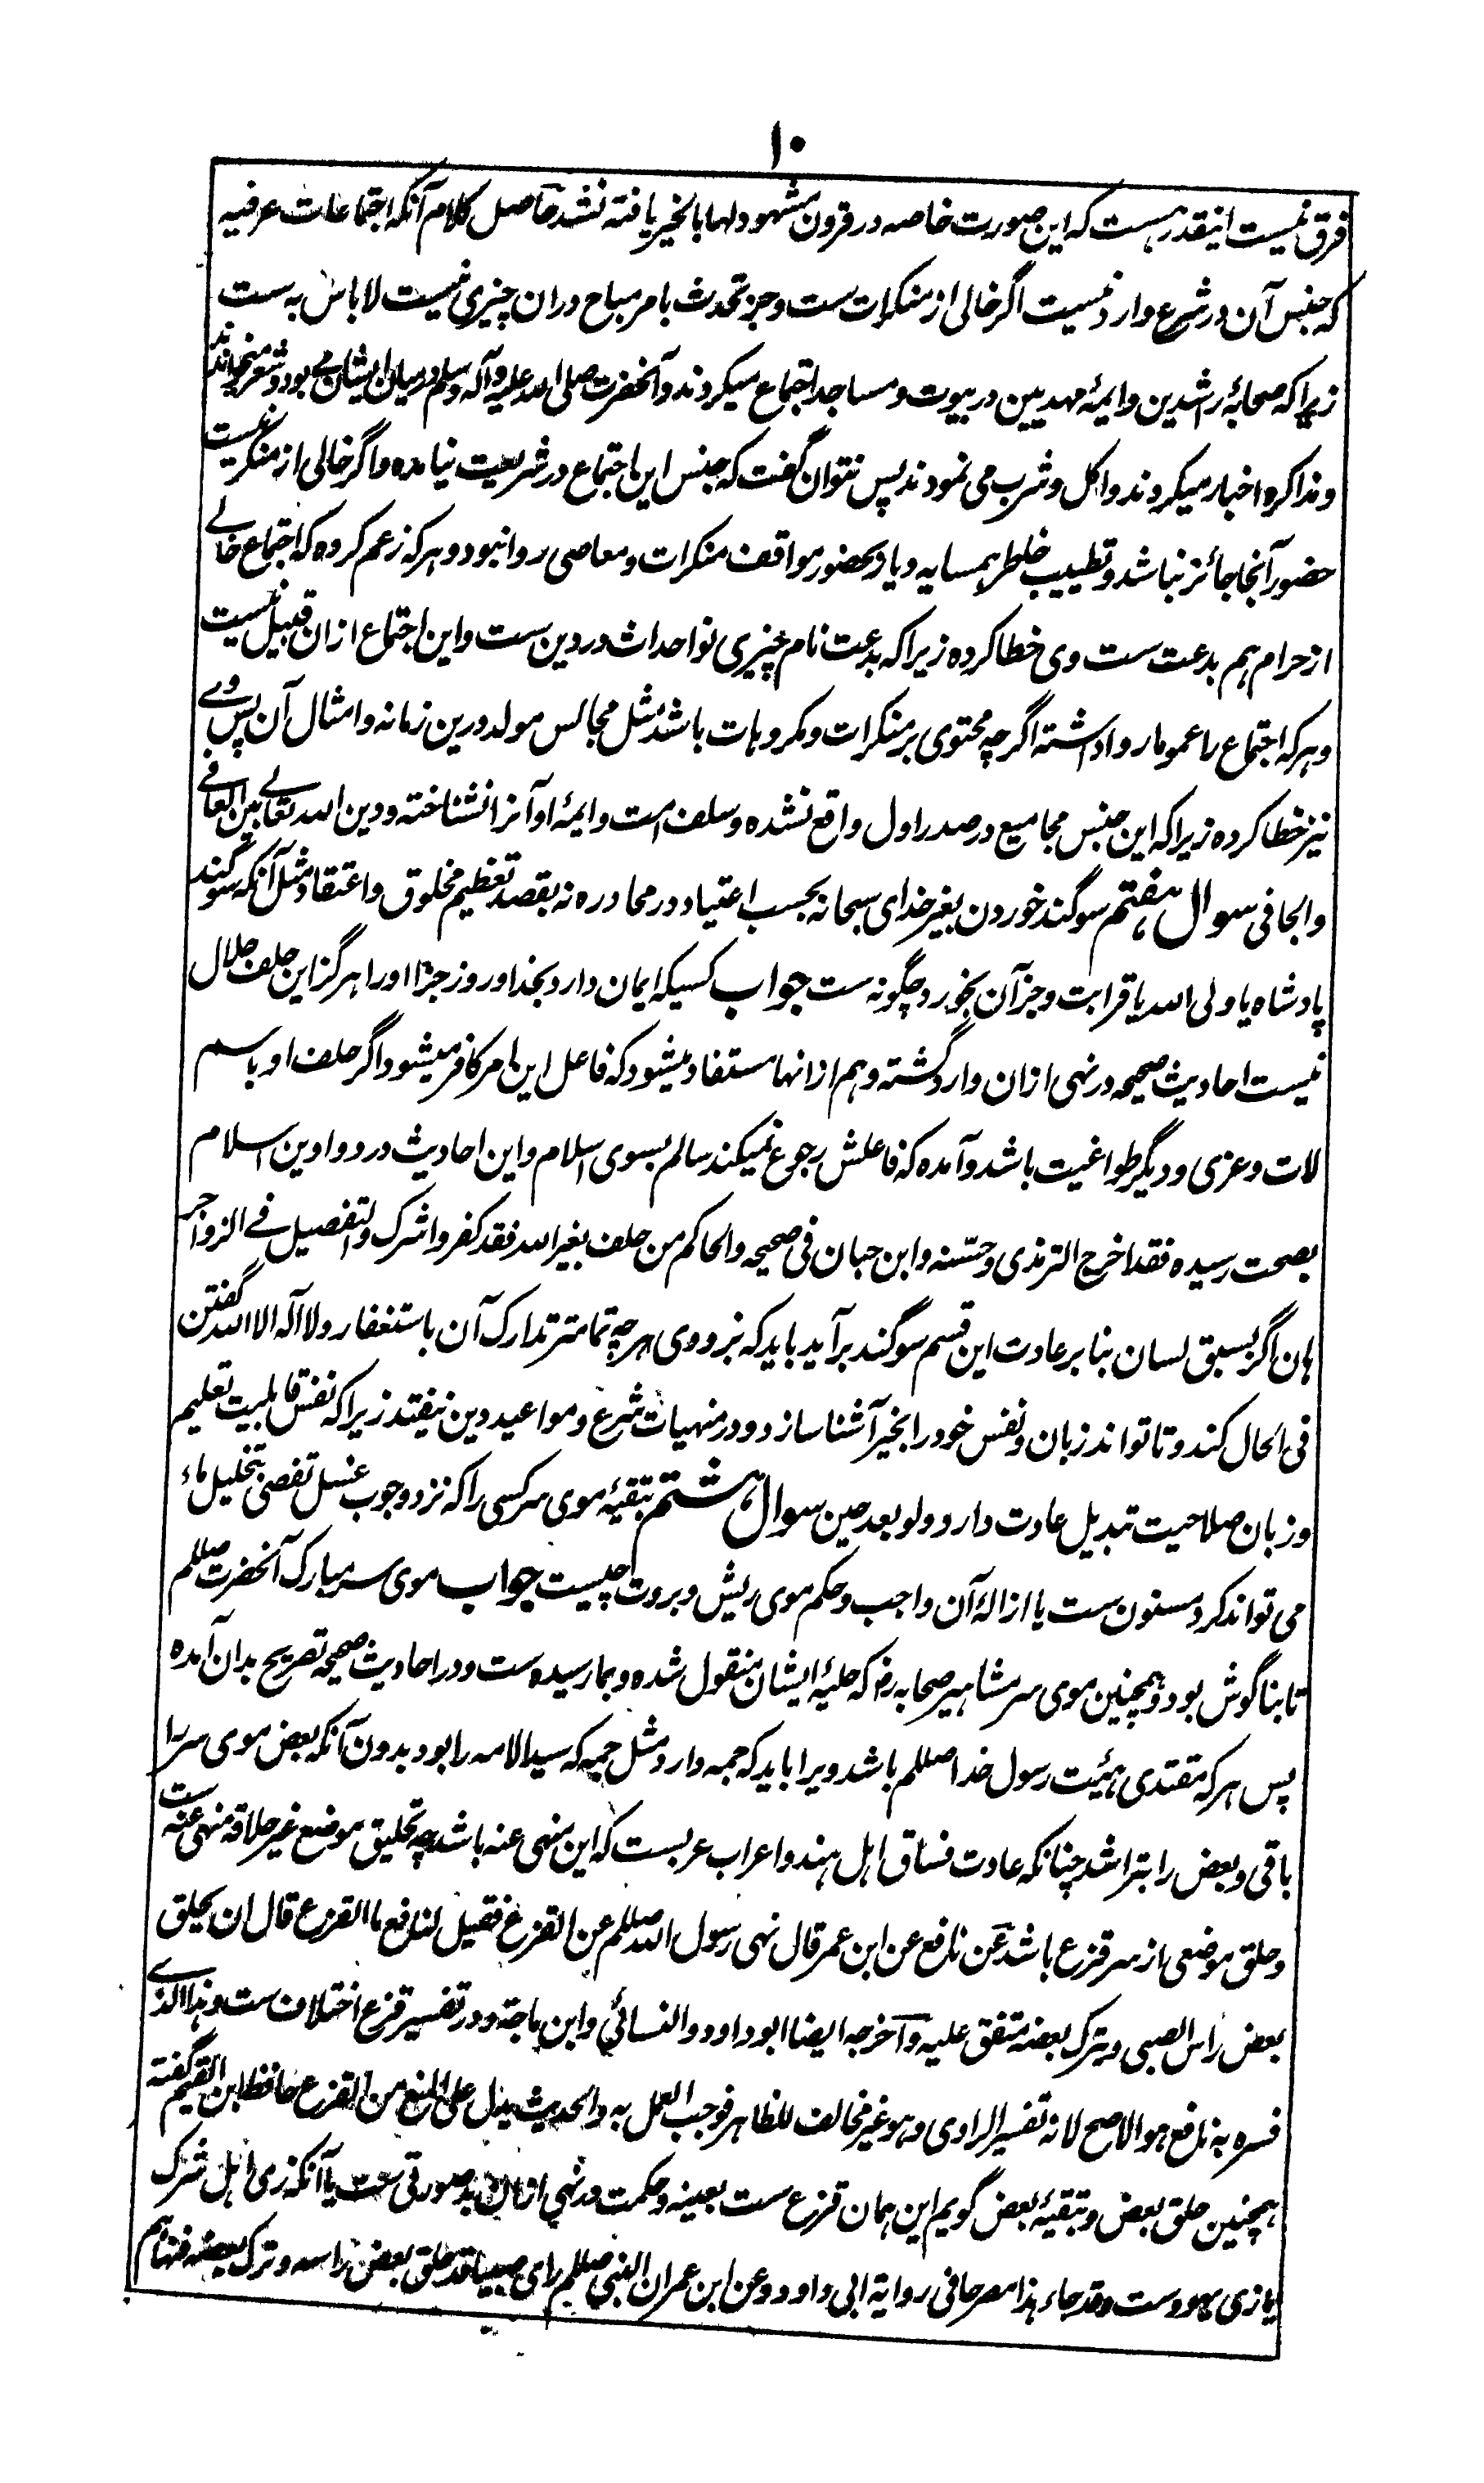 ۱۰
فرق نیست اینقدر هست که این صورت خاصه در قرون مشهود لها بالخیر یافته نشد حاصل کلام آنکه اجتماعات عرفیه
که جنس آن در شرع وارد نیست اگر خالی از منکرات ست و جز تحدث بامر مباح دران چیزی نیست لا باس به ست
زیرا که صحابۀ راشدین و ایمۀ مهدیین در بیوت و مساجد اجتماع میکردند و آنحضرت صلی الله علیه وآله وسلم درمیان ایشان می بود و شعر میخواندند
و مذاکره اخبار میکردند و اکل و شرب می نمودند پس نتوان گفت که جنس این اجتماع در شریعت نیامده و اگر خالی از منکر نیست
حضور آنجا جائز نباشد و تطییب خاطر همسایه و یا و بحضور مواقف منکرات و معاصی روا نبود و هر که زعم کرده که اجتماع خالے
از حرام هم بدعت ست وی خطا کرده زیرا که بدعت نام چیزی نو احداث در دین ست و این اجتماع ازان قبیل نیست
و هر که اجتماع را عموما روا داشته اگرچه محتوی بر منکرات و مکروهات باشد مثل مجالس مولد درین زمانه و امثال آن پس وے
نیز خطا کرده زیرا که این جنس مجامیع در صدر اول واقع نشده و سلف امت و ایمۀ او آنرا نشناخته و دین الله تعالے بین الغافے
والجافی سوال هفتم سوگند خوردن بغیر خدای سبحانه بحسب اعتیاد در محاوره نه بقصد تعظیم مخلوق و اعتقاد مثل آنکه سوگند
پادشاه یا ولی الله یا قرابت و جز آن بخورد چگونه ست جواب کسیکه ایمان دارد بخدا و روز جزا او را هرگز این حلف حلال
نیست احادیث صحیحه در نهی ازان وارد گشته و هم ازانها مستفاد میشود که فاعل این امر کافر میشود اگر حلف او باسم
لات و عزی و دیگر طواغیت باشد و آمده که فاعلش رجوع نمیکند سالم بسوی اسلام و این احادیث در دواوین اسلام
بصحت رسیده فقد اخرج الترمذی وحسّنه وابن حبان فی صحیحه والحاکم من حلف بغیر الله فقد کفر و اشرک والتفصیل فے الزواجر
هان اگر بسبق لسان بنا بر عادت این قسم سوگند بر آید باید که بزودی هر چه تمامتر تدارک آن باستغفار و لا اله الا الله گفتن
فی الحال کند و تا تواند زبان و نفس خود را بخیر آشنا سازد و در منهیات شرع و مواعید دین نیفتد زیرا که نفس قابلیت تعلیم
و زبان صلاحیت تبدیل عادت دارد و لو بعد حین سوال هشتم تبقیۀ موی سر کسی را که نزد وجوب غسل تفصی تخلیل ماء
می تواند کرد مسنون ست یا ازالۀ آن واجب و حکم موی ریش و بروت چیست جواب موی سر مبارک آنحضرت صللم
تا بناگوش بود و همچنین موی سر مشاهیر صحابه رض که حلیۀ ایشان منقول شده و بما رسیده ست و در احادیث صحیحه تصریح بدان آمده
پس هر که مقتدی هیئت رسول خدا صللم باشد ویرا باید که جمه دارد مثل جمیه که سید الامه را بود بدون آنکه بعض موی سر را
باقی و بعض را بتراشد چنانکه عادت فساق اهل هند و اعراب عربست که این منهی عنه باشد چه تحلیق موضع غیر حلاقه منهی عنه ست
و حلق موضعی از سر قزع باشد عن نافع عن ابن عمر قال نهی رسول الله صللم عن القزع فقیل لنافع ما القزع قال ان یحلق
بعض راس الصبی و یترک بعضه متفق علیه و اخرجه ایضا ابو داود والنسائي وابن ماجة و در تفسیر قزع اختلاف ست و هذا الذے
فسره به نافع هو الاصح لانه تفسیر الراوی وهو غیر مخالف للظاهر فوجب العمل به والحدیث یدل علی المنع من القزع حافظ ابن القیم گفته
همچنین حلق بعض و تبقیۀ بعض گویم این همان قزع ست بعینه و حکمت در نهی ازان بد صورتی ست یا آنکه زی اهل شرک
یا زی یهود ست وقد جاء هذا مصرحا فی روایة ابی داود وعن ابن عمر ان النبي صللم رای صبیا قد حلق بعض راسه وترک بعضه فنهاهم